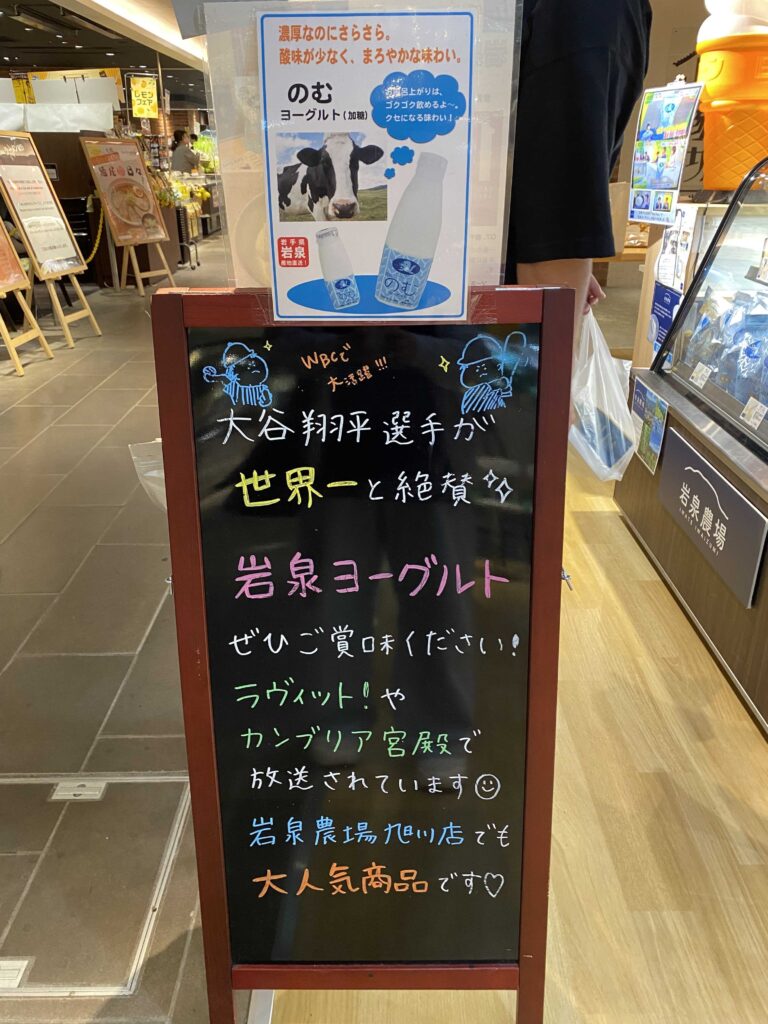 濃厚なのにさらさら。
酸味が少なく、まろやかな味わい。
のむ
ヨーグルト(加糖)
呂上がりは、
ゴクゴク飲めるよ〜。
クセになる味わい!
岩手県
岩泉
産地直送!
のむ
WBCで
大活躍!!!
大谷翔平選手が
世界一と絶賛
岩泉ヨーグルト
ぜひご賞味ください!
ラヴィット!や
カンブリア宮殿で
放送されています
岩泉農場旭川店でも
大人気商品です♡
レモン
フェア
岩泉農場